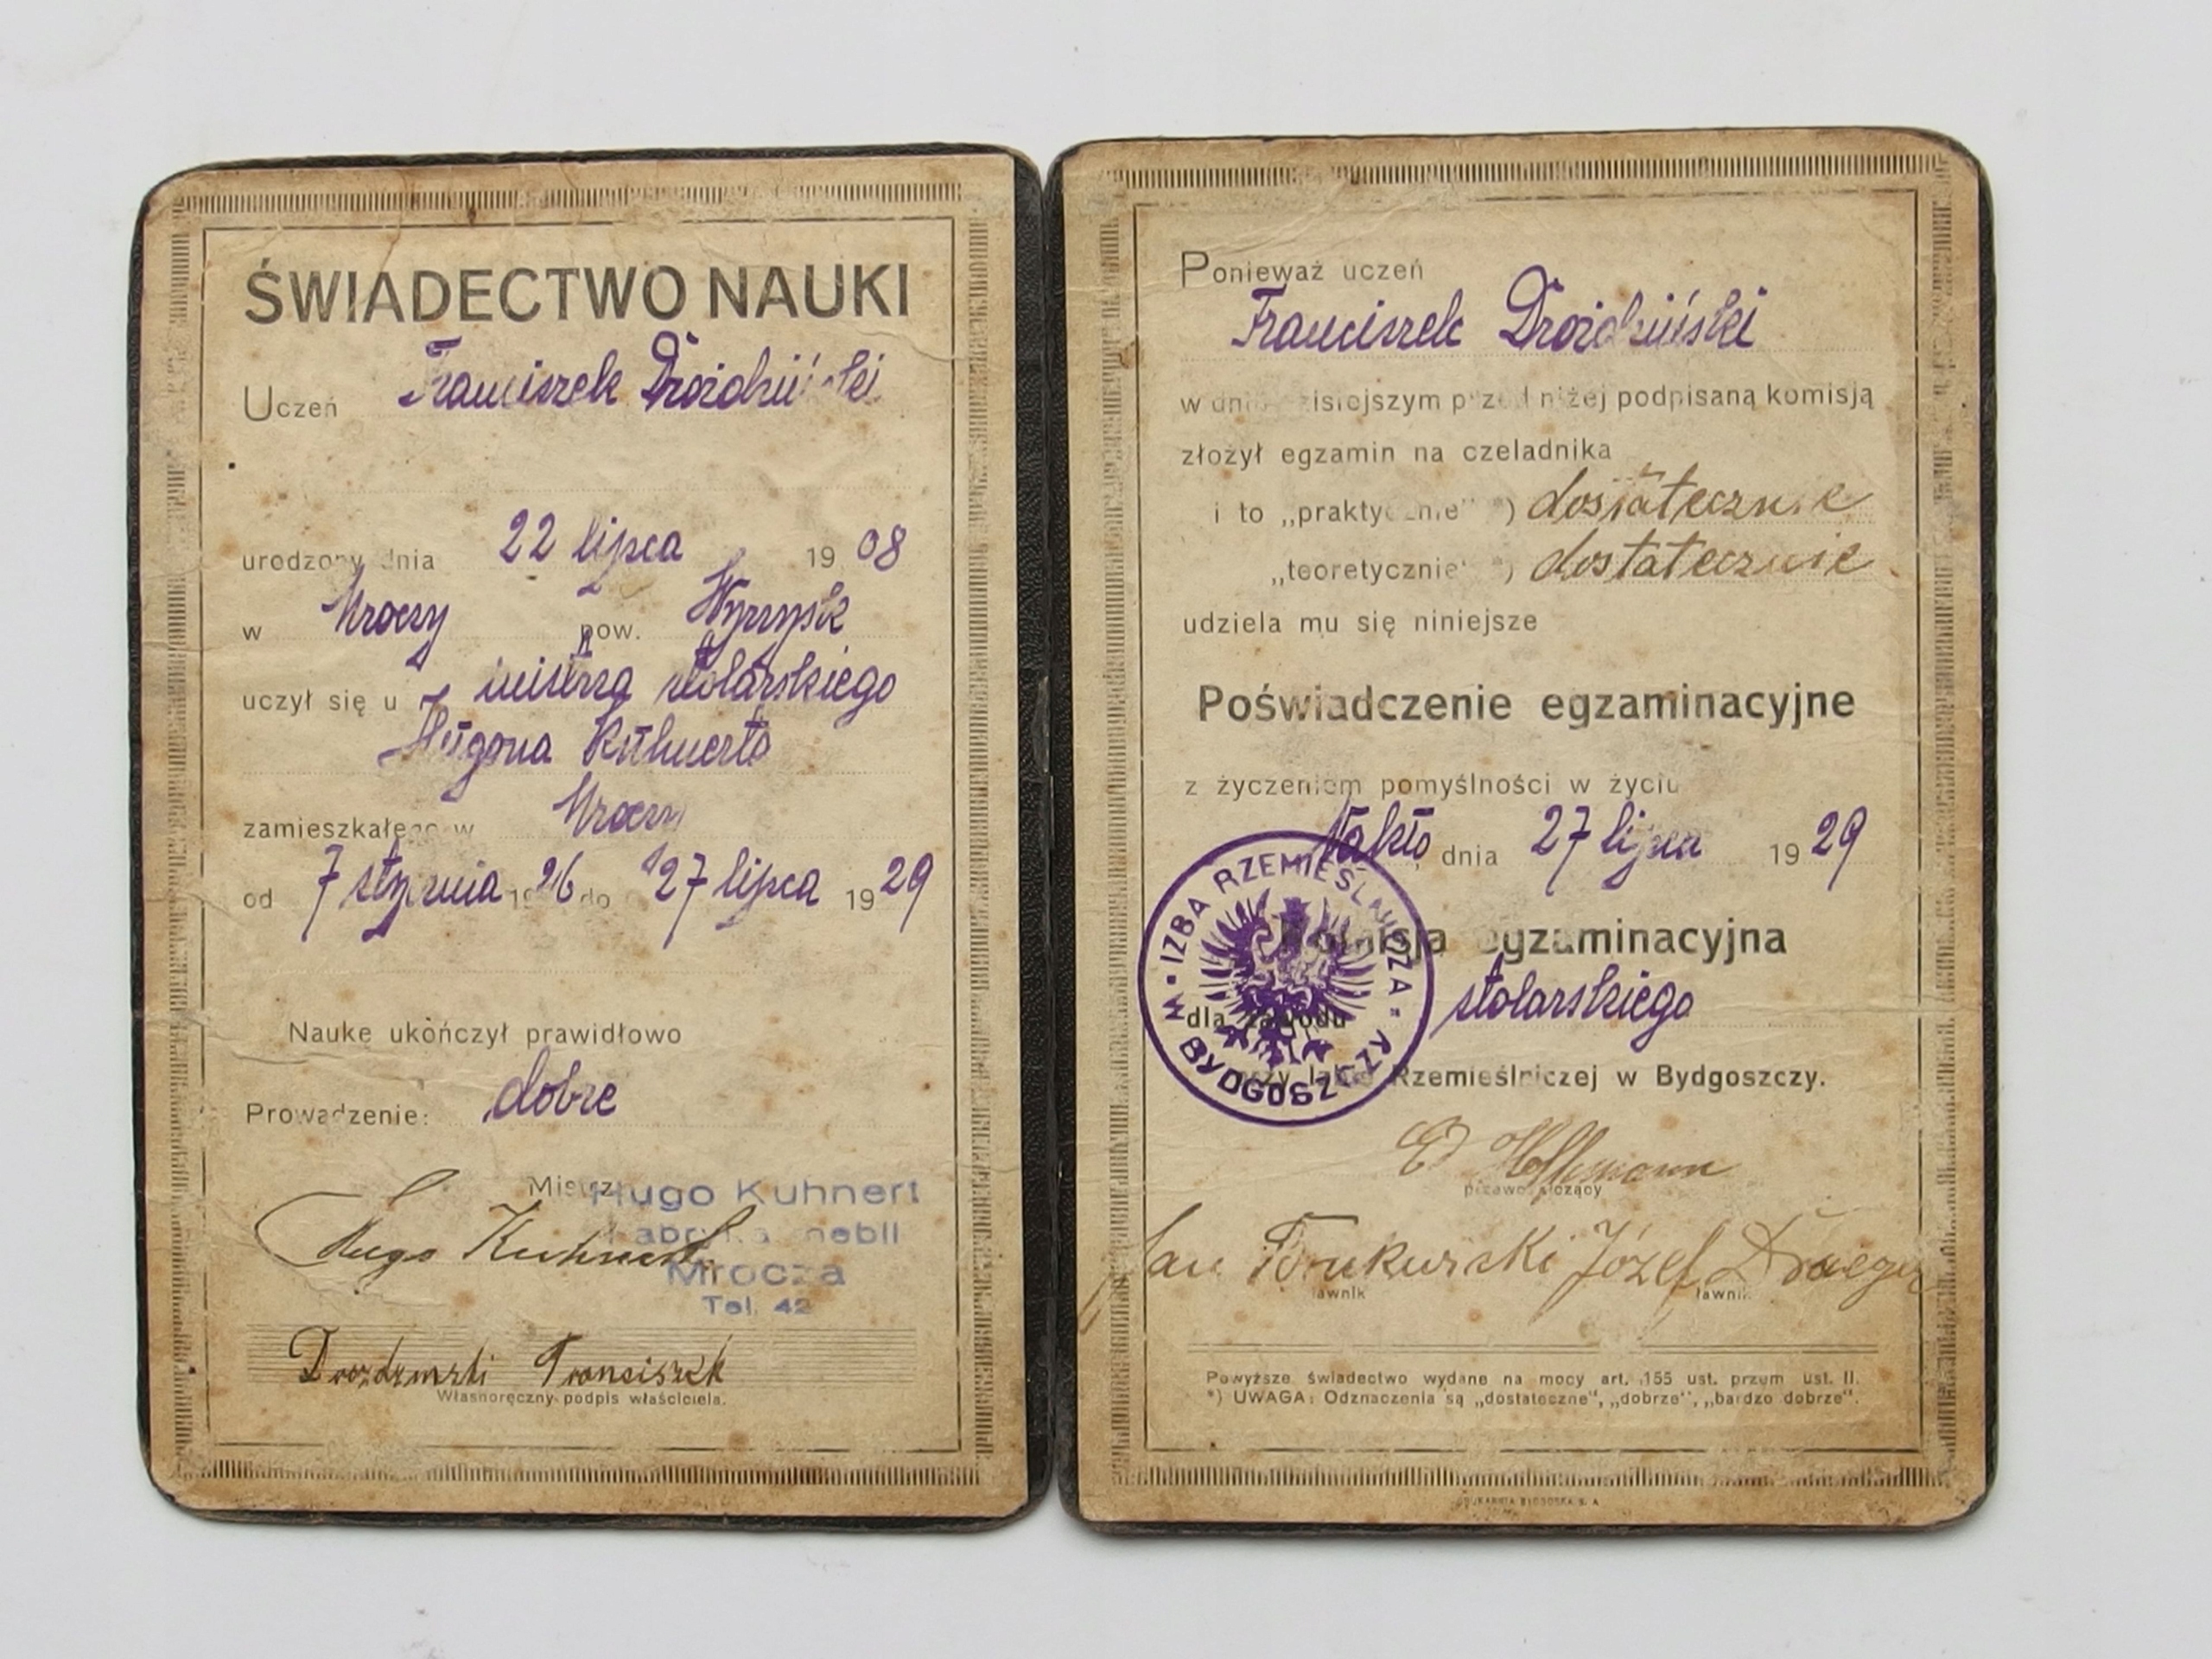 ŚWIADECTWO NAUKI
Uczeń Franciszek Drożdziński
urodzony dnia 22 lipca 19 08
w Mroczy pow. Wyrzysk
uczył się u mistrza stolarskiego
Hugona Kuhnerta
zamieszkałego w Mroczy
od 7 stycznia 1926 do 27 lipca 19 29
Naukę ukończył prawidłowo
Prowadzenie: dobre
Mistrz
Hugo Kuhnert
Fabryka mebli
Mrocza
Tel. 42
Hugo Kuhnert
Drozdzinski Franciszek
Własnoręczny podpis właściciela.
Ponieważ uczeń
Franciszek Drożdziński
w dniu dzisiejszym przed niżej podpisaną komisją
złożył egzamin na czeladnika
i to „praktycznie" *) dostatecznie
„teoretycznie" *) dostatecznie
udziela mu się niniejsze
Poświadczenie egzaminacyjne
z życzeniem pomyślności w życiu
Nakło, dnia 27 lipca 19 29
Komisja egzaminacyjna
dla zawodu stolarskiego
przy Izbie Rzemieślniczej w Bydgoszczy.
IZBA RZEMIEŚLNICZA W BYDGOSZCZY
przewodniczący
Jan Józef
ławnik ławnik
Powyższe świadectwo wydane na mocy art. 155 ust. przem ust. II.
*) UWAGA: Odznaczenia są „dostateczne", „dobrze", „bardzo dobrze".